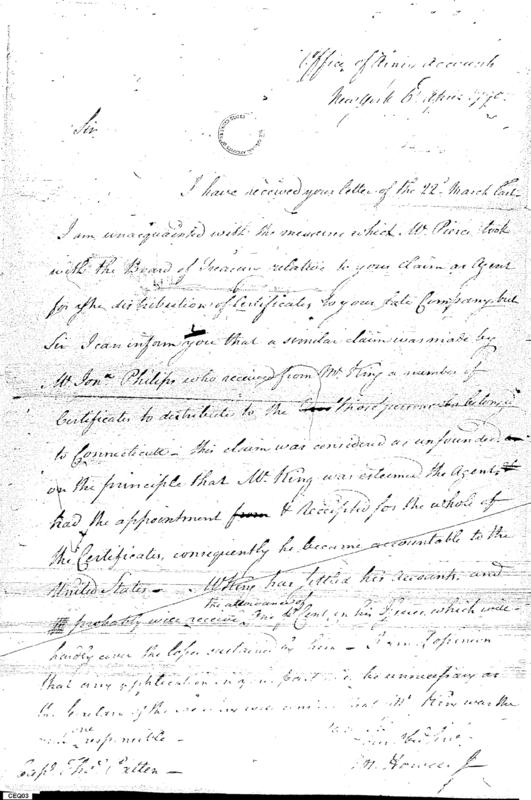 Office of Army Accounts
New York 6 April 1790
Sir
I have received your letter of the 22d March last
I am unacquainted with the measures which Mr Pierce took
with the Board of Treasury relative to your claim as Agent
for the distribution of Certificates to your late Company, but
Sir I can inform you that a similar claim was made by
Mr Jona Philips who received from Mr King a number of
Certificates to distribute to the those persons belong
to Connecticut - this claim was considered as unfounded
on the principle that Mr King was esteemed the Agent
had the appointment from & Receipted for the whole of
the Certificates, consequently he became accountable to the
United States - Mr King has settled his Accounts, and
the allowance of
probably will receive one Pr Cent in his favor, which will
hardly cover the losses sustained by him - I am of opinion
that any application on your part will be unnecessary as
the was the
one responsible -
Capt Thos Patten -
M Howell Jr
CEQ03